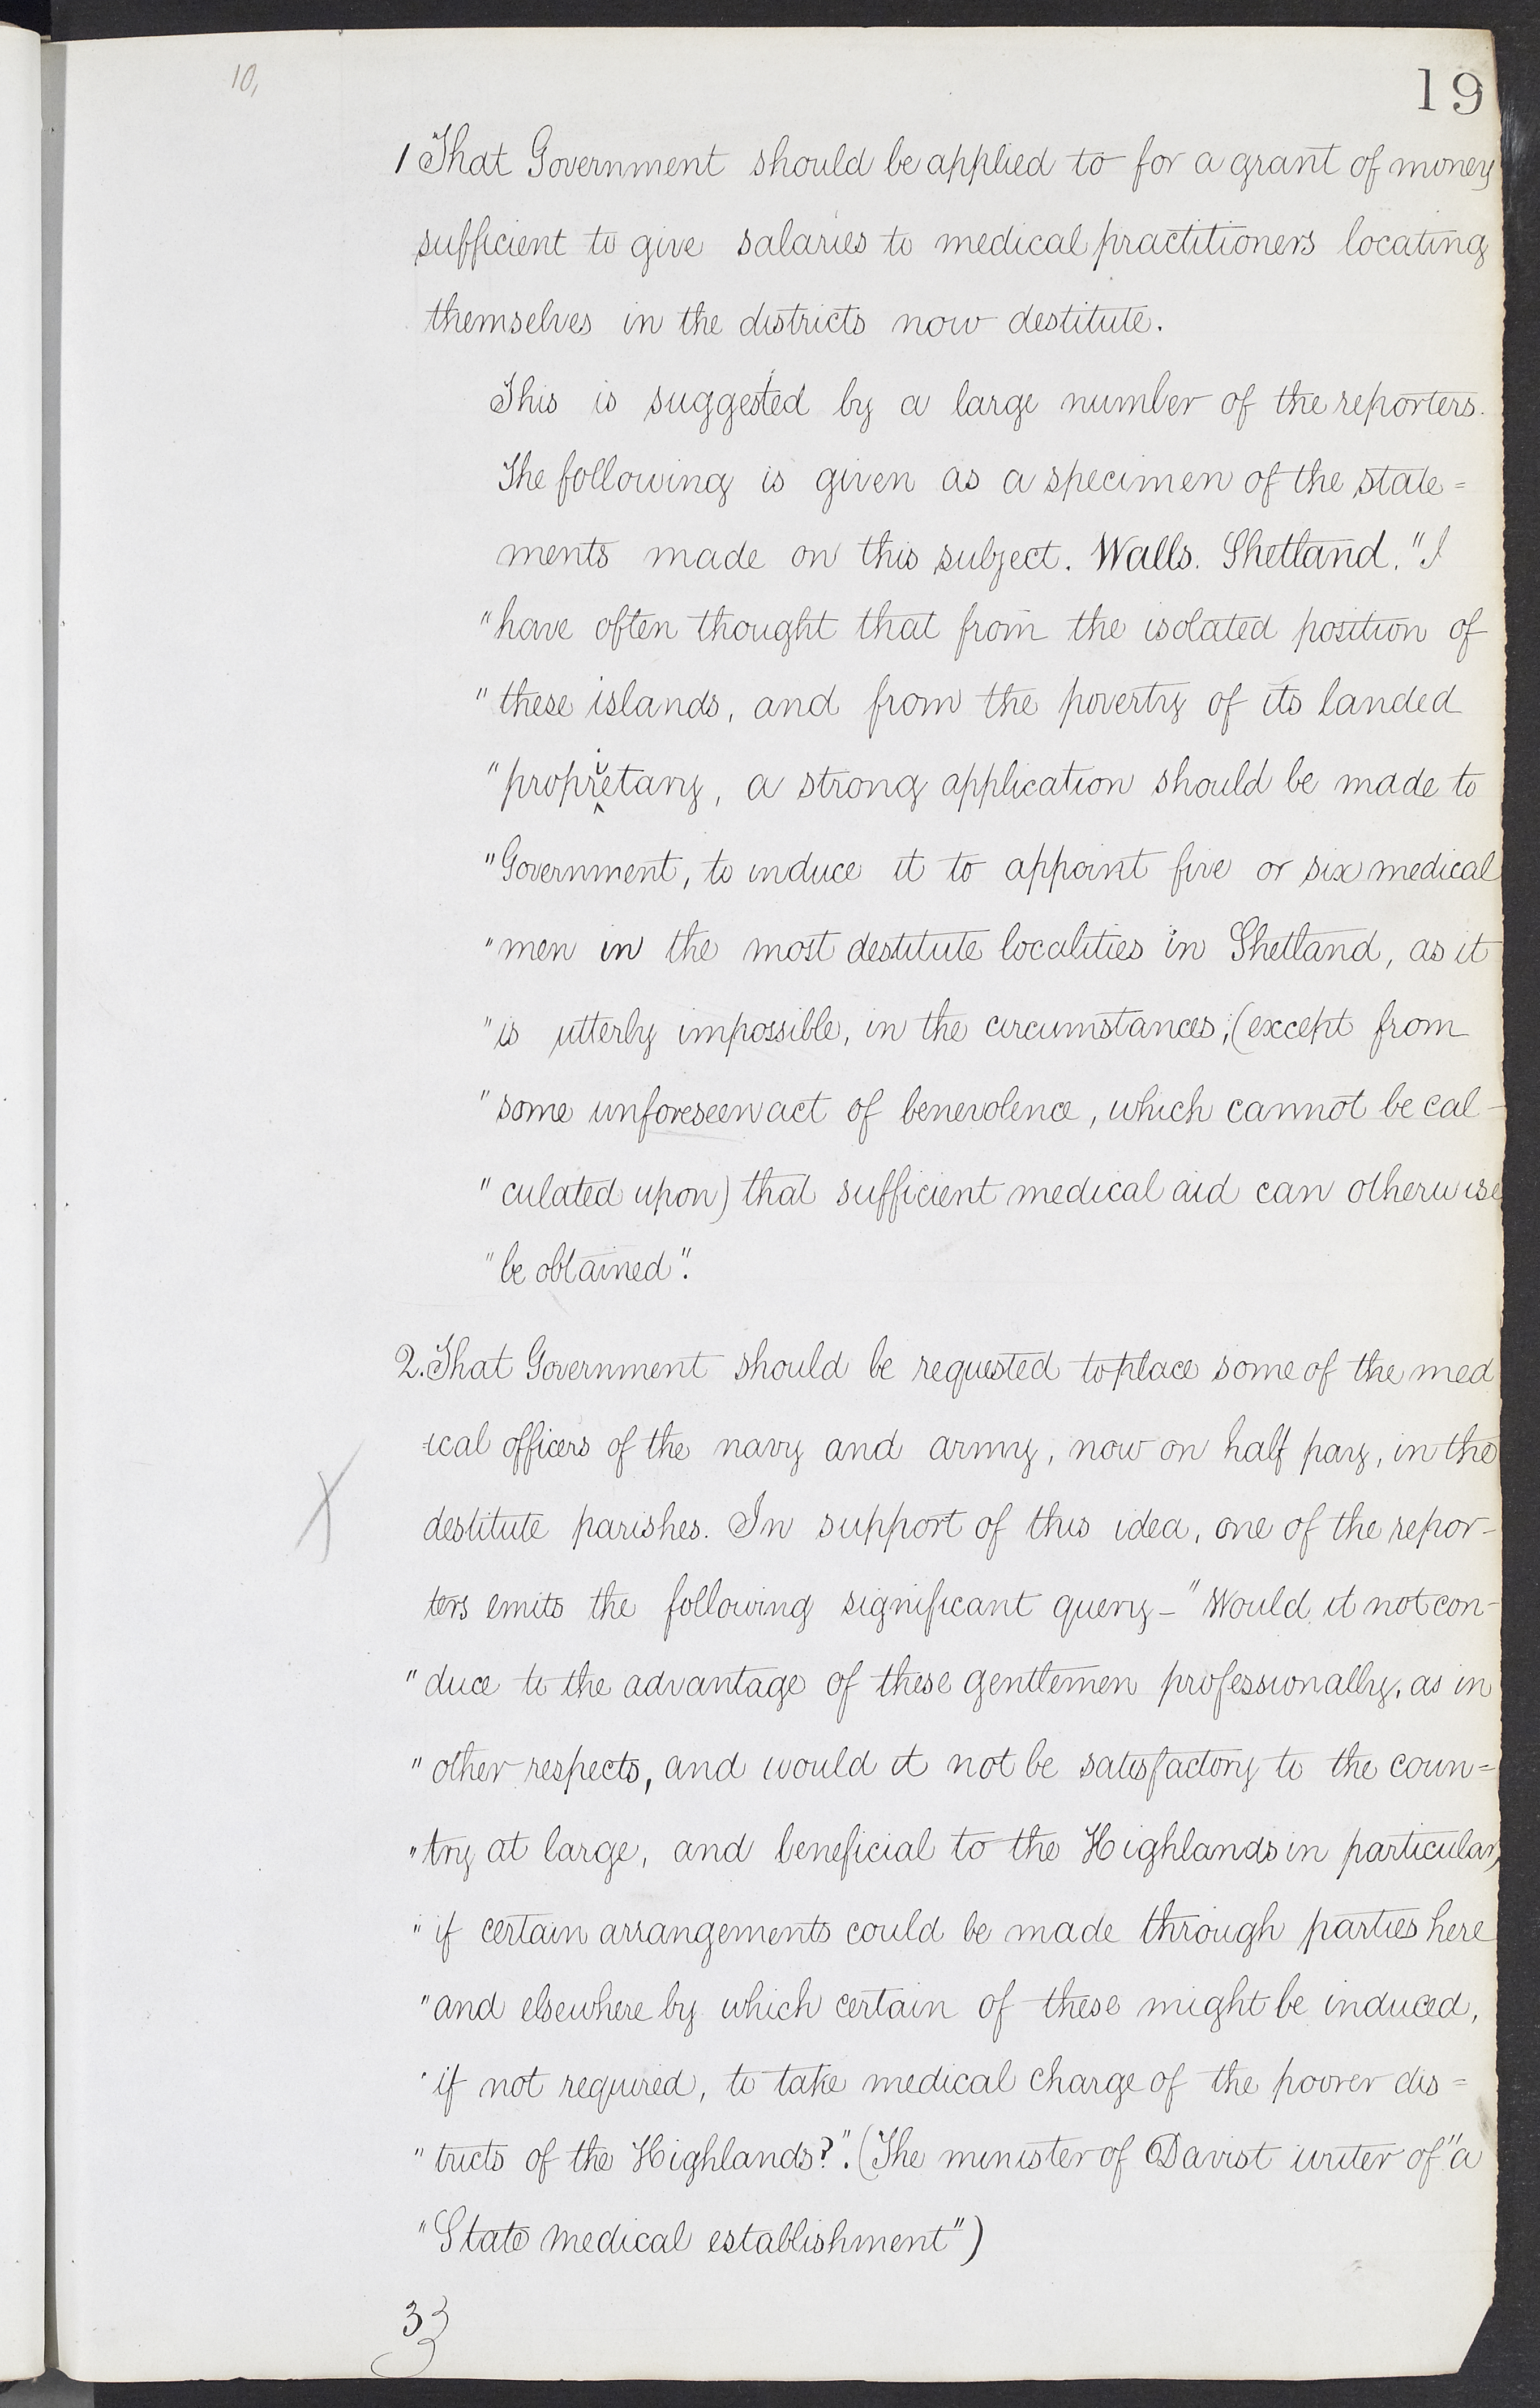 10,
19
1 That Government should be applied to for a grant of money
sufficient to give salaries to medical practitioners locating
themselves in the districts now destitute.
This is suggested by a large number of the reporters.
The following is given as a specimen of the state=
ments made on this subject. Walls. Shetland. "I
"have often thought that from the isolated position of
"these islands, and from the poverty of its landed
"proprietary, a strong application should be made to
"Government, to induce it to appoint five or six medical
"men in the most destitute localities in Shetland, as it
"is utterly impossible, in the circumstances; (except from
"some unforeseen act of benevolence, which cannot be cal-
"culated upon) that sufficient medical aid can otherwise
"be obtained".
2. That Government should be requested to place some of the med
-ical officers of the navy and army, now on half pay, in the
destitute parishes. In support of this idea, one of the repor-
ters emits the following significant query - "Would it not con-
"duce to the advantage of these gentlemen professionally, as in
"other respects, and would it not be satisfactory to the coun=
"try at large, and beneficial to the Highlands in particular,
"if certain arrangements could be made through parties here
"and elsewhere by which certain of these might be induced,
"if not required, to take medical charge of the poorer dis=
"tricts of the Highlands?". (The minister of Daviot writer of "a
"State medical establishment")
3